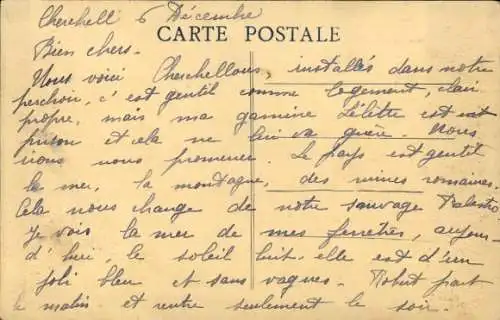 Cherchell 6 Décembre
CARTE POSTALE
Bien chers.
Nous voici Cherchellous, installés dans notre
perchoir, c'est gentil comme logement, clair
propre, mais ma gamine est en
prison et cela ne lui va guère. Nous
irons nous promener. Le pays est gentil
la mer, la montagne, des ruines romaines.
Cela nous change de notre sauvage Palestro
Je vois la mer de mes fenêtres, aujour-
d'hui, le soleil luit. elle est d'un
joli bleu et sans vagues. Robert part
le matin et rentre seulement le soir.